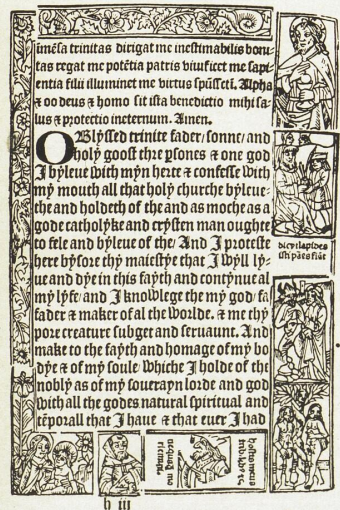 īmēsa trinitas dirigat me inestimabilis boni⸗
tas regat me potētia patris viuificet me sapi
entia filii illuminet me virtus spūssctī. Alpha
⁊ oo deus ⁊ homo sit ista benedictio mihi sa⸗
lus ⁊ protectio ineternum. Amen.
O Blyssed trinite fader/ sonne/ and
holy goost thre ꝑsones ⁊ one god
I byleue with myn herte ⁊ confesse with
my mouth all that holy churche byleue⸗
the and holdeth of the and as moche as a
gode catholyke and crysten man oughte
to fele and byleue of the/ And I proteste
here byfore thy maiestye that I wyll ly⸗
ue and dye in this fayth and contynue al
my lyfe/ and I knowlege the my god/ fa
fader ⁊ maker of al the worlde. ⁊ me thy
pore creature subget and seruaunt. And
make to the fayth and homage of my bo
dye ⁊ of my soule whiche I holde of the
nobly as of my souerayn lorde and god
with all the godes natural spiritual and
tēporall that I haue ⁊ that euer I had
dic vt lapides
isti pāes fiāt
h iii